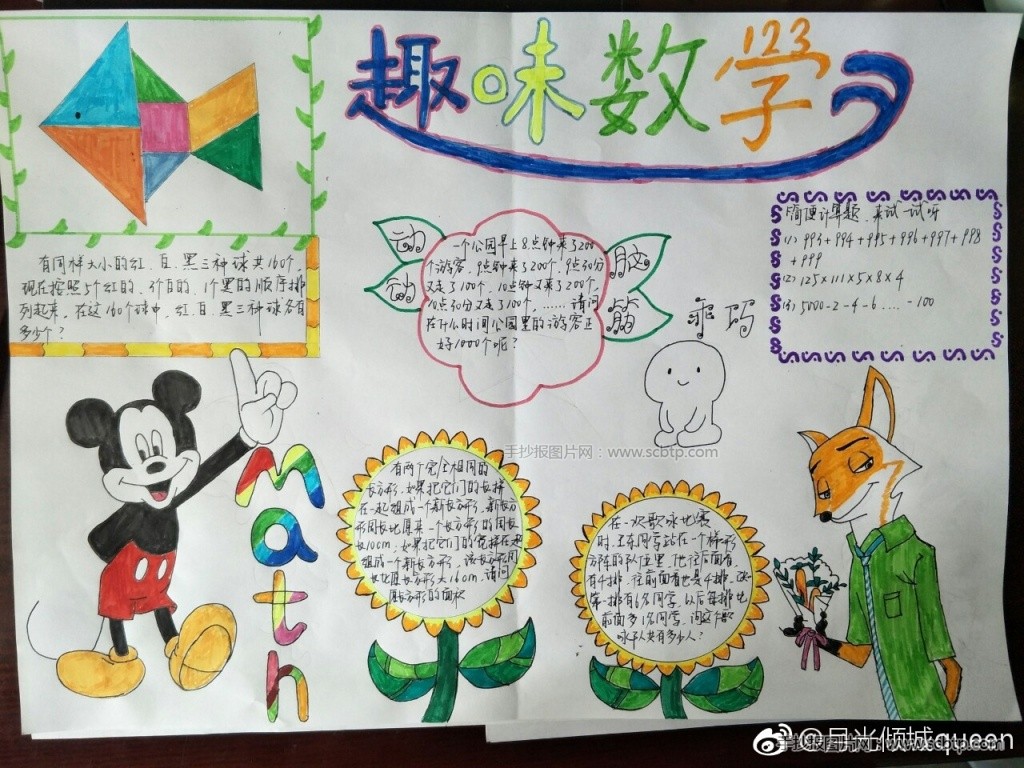 趣味数学
123
有同样大小的红、白、黑三种球共160个,
现在按照5个红的、3个白的、1个黑的顺序排
列起来,在这160个球中,红、白、黑三种球各有
多少个?
动
脑
脑
筋
一个公园早上8点钟来了200
个游客,9点钟来了200个,9点30分
又走了100个,10点钟又来了200个,
10点30分又走了100个,……请问
在什么时间公园里的游客正
好1000个呢?
简便计算题,来试一试听
(1) 993+994+995+996+997+998
+999
(2) 125×111×5×8×4
(3) 5000-2-4-6……-100
乖吗
Math
手抄报图片网:www.scbtp.com
有两个完全相同的
长方形,如果把它们的长拼
在一起组成一个新长方形,新长方
形周长比原来一个长方形的周长
长10cm,如果把它们的宽拼在起
组成一个新长方形,该长方形周
长比原长方形大16cm,请问
原长方形的面积
在一次歌咏比赛
时,王东同学站在一个梯形
方阵的队伍里,他往后面看,
有4排,往前面看也是4排,这
第一排有6名同学,以后每排比
前面多1名同学,问这个歌
咏队共有多少人?
@月光倾城queen
手抄报图片网:www.scbtp.com